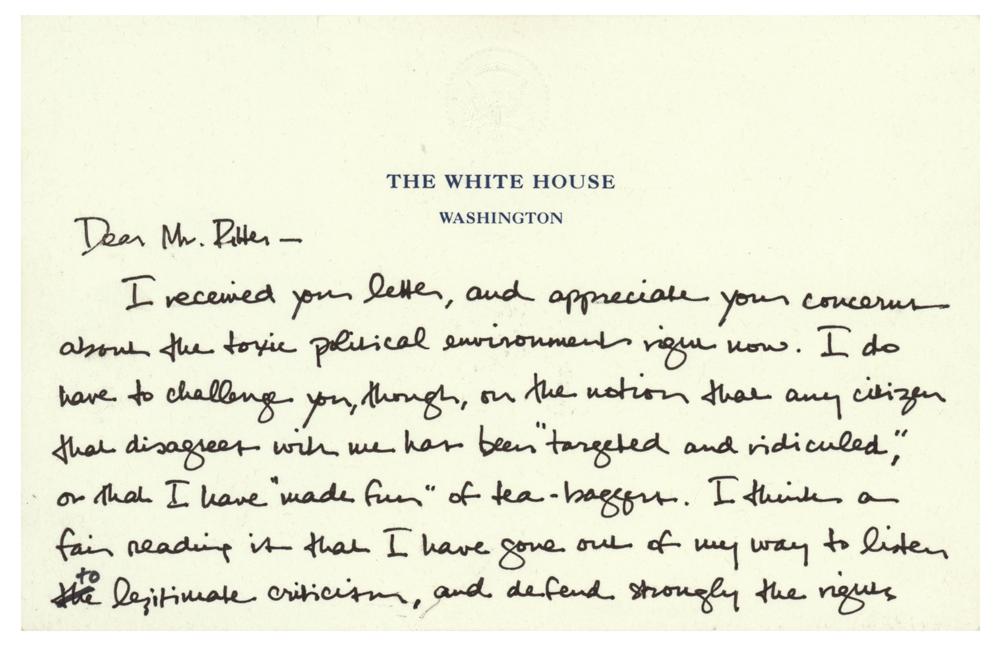 THE WHITE HOUSE
WASHINGTON
Dear Mr. Ritter —
I received your letter, and appreciate your concerns
about the toxic political environment right now. I do
have to challenge you, though, on the notion that any citizen
that disagrees with me has been "targeted and ridiculed",
or that I have "made fun" of tea-baggers. I think a
fair reading is that I have gone out of my way to listen
to
the legitimate criticism, and defend strongly the rights